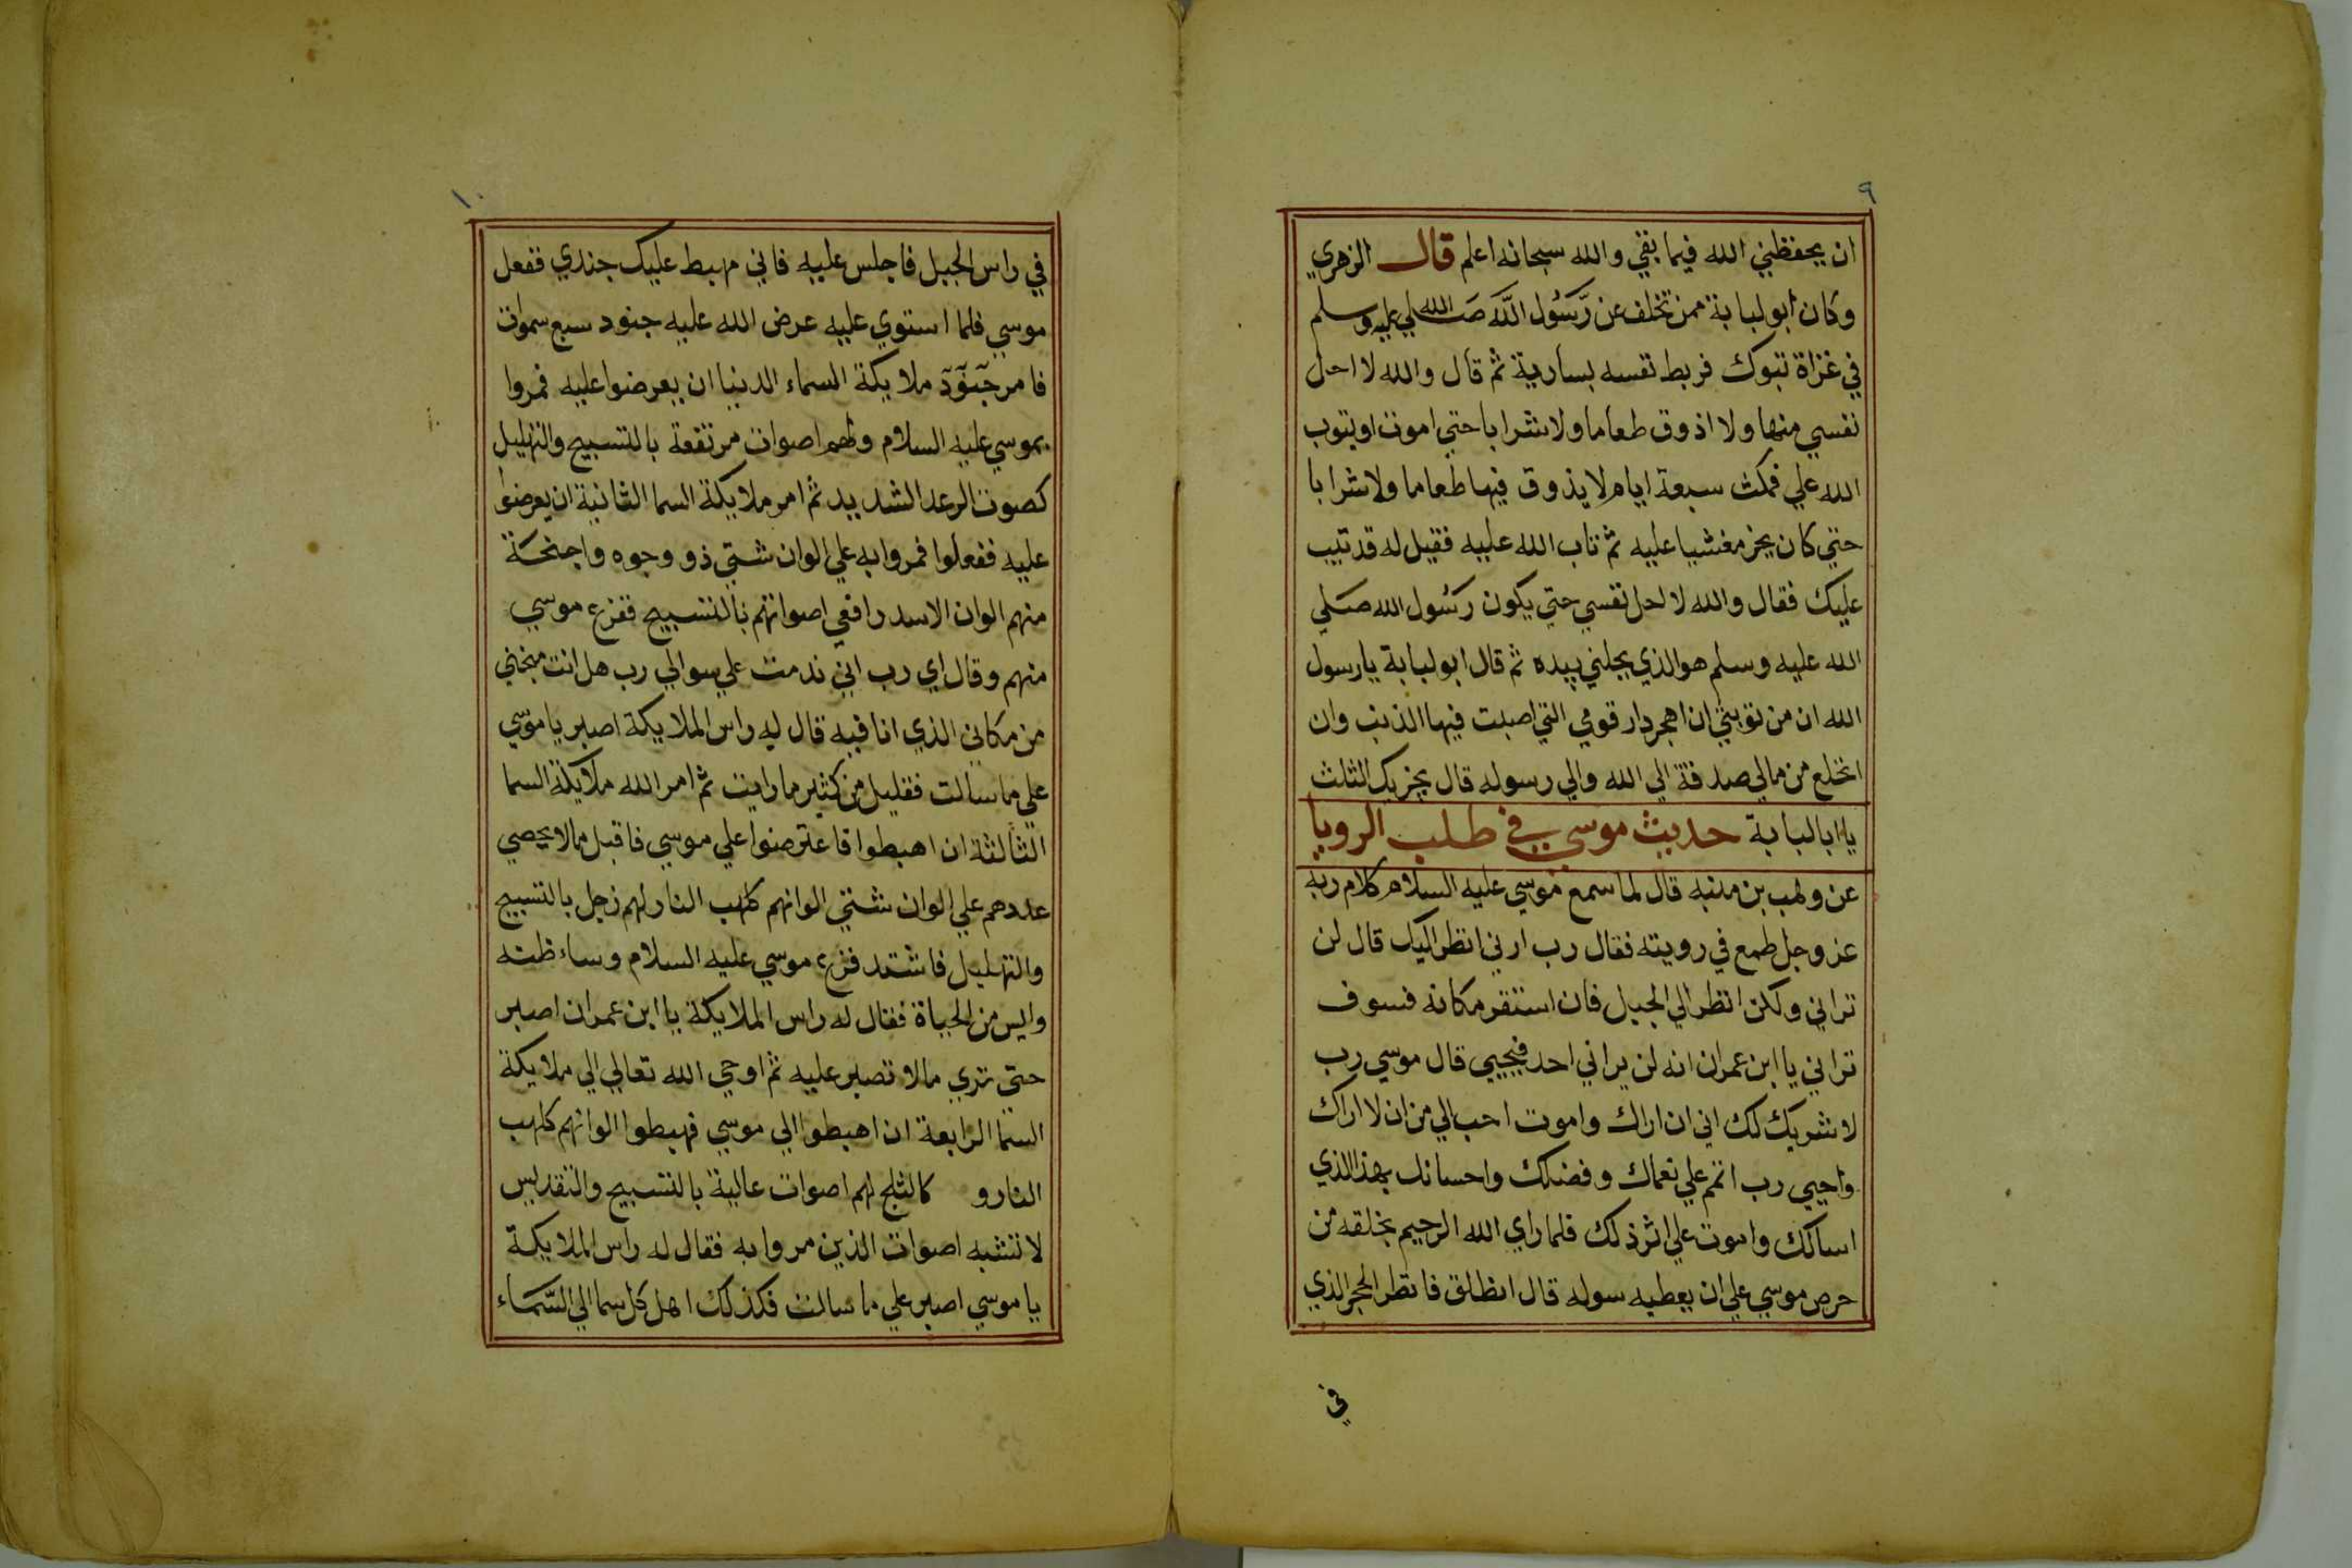 ٩
ان يحفظني الله فيما بقي والله سبحانه اعلم قال الزهري
وكان ابو لبابة ممن تخلف عن رَسُول اللَّه صَلي الله عليه وسلم
في غزاة تبوك فربط نفسه بسارية ثم قال والله لا احل
نفسي منها ولا اذوق طعاما ولا شرابا حتي اموت او يتوب
الله علي فمكث سبعة ايام لا يذوق فيها طعاما ولا شرابا
حتي كان يخر مغشيا عليه ثم تاب الله عليه فقيل له قد تيب
عليك فقال والله لا احل نفسي حتي يكون رسُول الله صَلي
الله عليه وسلم هو الذي يحلني بيده ثم قال ابو لبابة يا رسول
الله ان من توبتي ان اهجر دار قومي التي اصبت فيها الذنب وان
انخلع من مالي صدقة الي الله والي رسوله قال يجزيك الثلث
يا ابا لبابة حديث موسي في طلب الرويا
عن وهب بن منبه قال لما سمع موسي عليه السلام كلام ربه
عز وجل طمع في رويته فقال رب ارني انظر اليك قال لن
تراني ولكن انظر الي الجبل فان استقر مكانه فسوف
تراني يا ابن عمران انه لن يراني احد فيحيي قال موسي رب
لا شريك لك اني ان اراك واموت احب الي من ان لا اراك
واحيي رب اتمم علي نعماك وفضلك واحسانك بهذا الذي
اسالك واموت علي اثر ذلك فلما راي الله الرحيم بخلقه من
حرص موسي علي ان يعطيه سوله قال انطلق فانظر الحجر الذي
في
١٠
في راس الجبل فاجلس عليه فاني مهبط عليك جندي ففعل
موسي فلما استوي عليه عرض الله عليه جنود سبع سموات
فامر جنود ملايكة السماء الدنيا ان يعرضوا عليه فمروا
بموسي عليه السلام ولهم اصوات مرتفعة بالتسبيح والتهليل
كصوت الرعد الشديد ثم امر ملايكة السما الثانية ان يعرضوا
عليه ففعلوا فمروا به علي الوان شتي ذو وجوه واجنحة
منهم الوان الاسد رافعي اصواتهم بالتسبيح ففزع موسي
منهم وقال اي رب اني ندمت علي سوالي رب هل انت منجني
من مكاني الذي انا فيه قال له راس الملايكة اصبر يا موسي
علي ما سالت فقليل من كثير ما رايت ثم امر الله ملايكة السما
الثالثة ان اهبطوا فاعترضوا علي موسي فاقبل مالا يحصي
عددهم علي الوان شتي الوانهم كلهب النار لهم زجل بالتسبيح
والتهليل فاشتد فزع موسي عليه السلام وساء ظنه
وايس من الحياة فقال له راس الملايكة يا ابن عمران اصبر
حتي تري مالا تصبر عليه ثم اوحي الله تعالي الي ملايكة
السما الرابعة ان اهبطوا الي موسي فهبطوا الوانهم كلهب
النار و كالثلج لهم اصوات عالية بالتسبيح والتقديس
لا تشبه اصوات الذين مروا به فقال له راس الملايكة
يا موسي اصبر علي ما سالت فكذلك اهل كل سما الي السَّمَاء